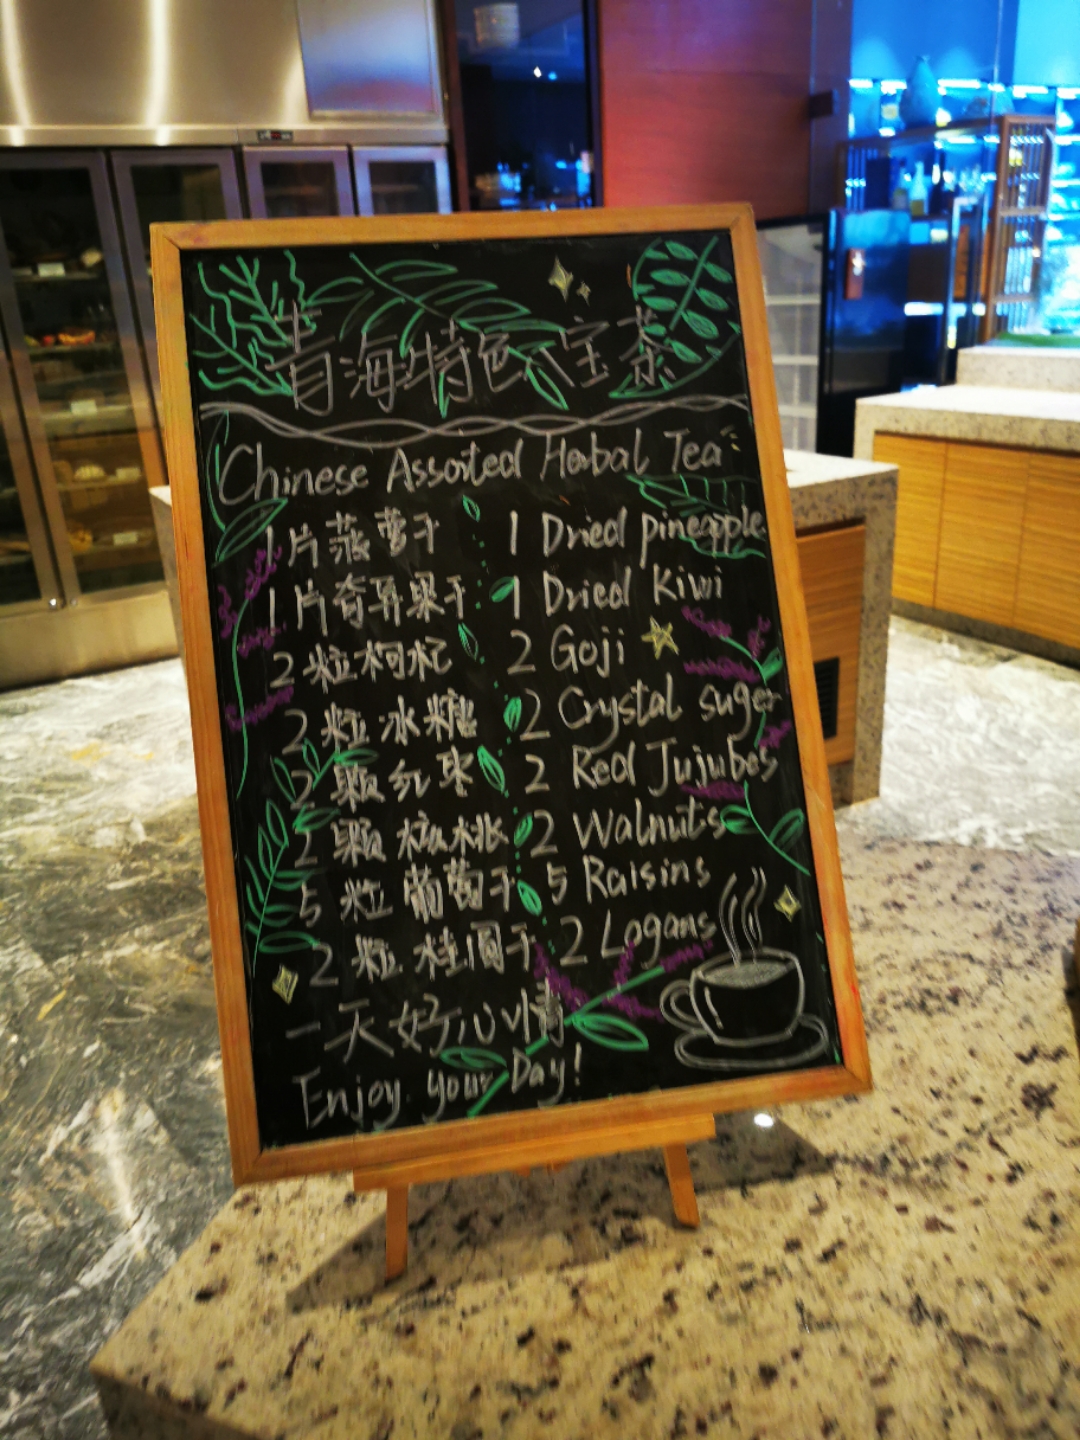 青海特色八宝茶
Chinese Assorted Herbal Tea
1片菠萝干 1 Dried pineapple
1片奇异果干 1 Dried Kiwi
2粒枸杞 2 Goji
2粒冰糖 2 Crystal suger
2颗红枣 2 Red Jujubes
2颗核桃 2 Walnuts
5粒葡萄干 5 Raisins
2粒桂圆干 2 Logans
一天好心情
Enjoy your Day!